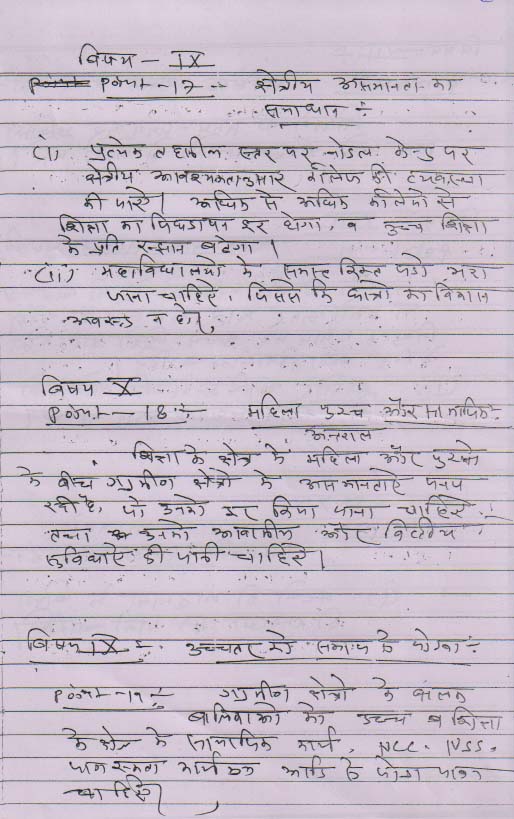 विषय - IX
Point - 17 :- क्षेत्रीय असमानता का
समाधान :-
(i) प्रत्येक तहसील स्तर पर नोडल केन्द्र पर
क्षेत्रीय आवश्यकतानुसार कॉलेज की व्यवस्था
की जाये। अधिक से अधिक कॉलेजो से
शिक्षा का पिछडापन दूर होगा, व उच्च शिक्षा
के प्रति रुझान बढेगा।
(ii) महाविधालयो के समस्त रिक्त पदो भरा
जाना चाहिए, जिससे कि छात्रो का विकास
अवरुद्ध न हो।
विषय X
Point - 18 :- महिला पुरुष और सामाजिक
अन्तराल
शिक्षा के क्षेत्र मे महिला और पुरुषो
के बीच ग्रामीण क्षेत्रो मे असमानताऐ पनप
रही है, जो उनको दूर किया जाना चाहिऐ।
तथा उनको आवासीय और वित्तीय
सुविधाऐ दी जानी चाहिऐ।
विषय IX :- उच्चतर को समाज से जोडना :-
Point - 19 :- ग्रामीण क्षेत्रो के बालक
बालिकाओ को उच्च व शिक्षा
के क्षेत्र मे सामाजिक कार्य, NCC. NSS.
जागरूकता कार्यक्रम आदि से जोडा जाना
चाहिऐ।